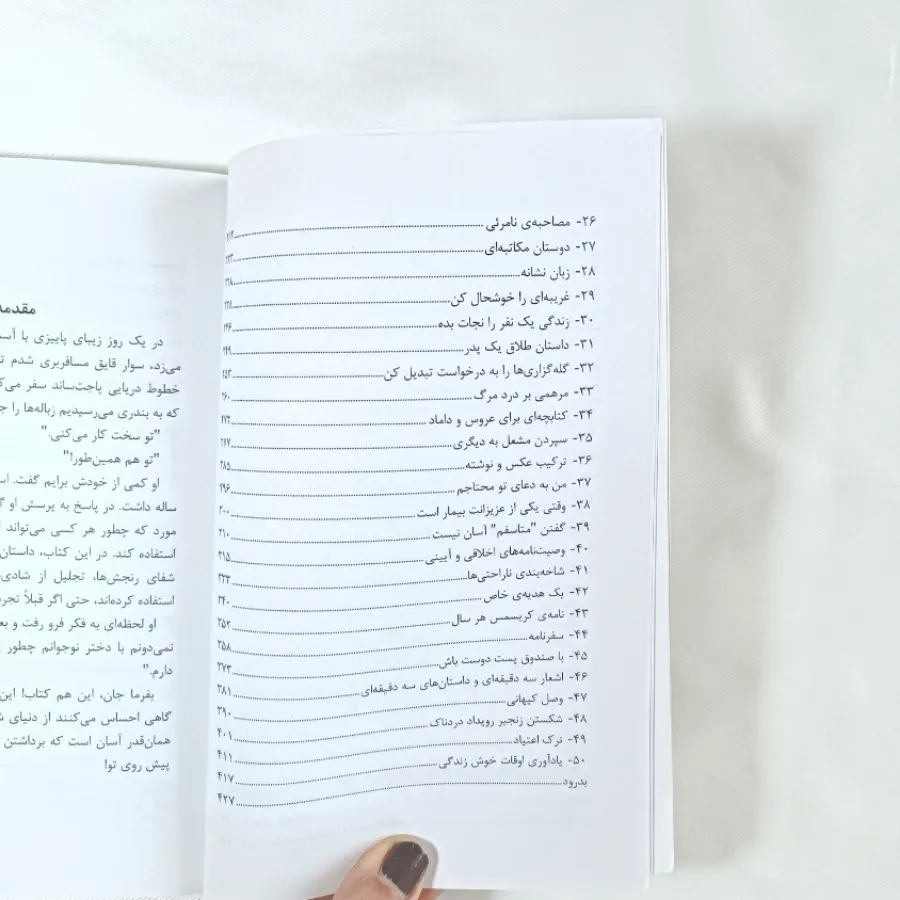 ۲۶- مصاحبه‌ی نامرئی
۲۷- دوستان مکاتبه‌ای
۲۸- زبان نشانه
۲۹- غریبه‌ای را خوشحال کن
۳۰- زندگی یک نفر را نجات بده ۲۴۶
۳۱- داستان طلاق یک پدر ۲۴۹
۳۲- گله‌گزاری‌ها را به درخواست تبدیل کن ۲۵۴
۳۳- مرهمی بر درد مرگ ۲۶۰
۳۴- کتابچه‌ای برای عروس و داماد ۲۷۲
۳۵- سپردن مشعل به دیگری ۲۷۷
۳۶- ترکیب عکس و نوشته ۲۸۵
۳۷- من به دعای تو محتاجم ۲۹۶
۳۸- وقتی یکی از عزیزانت بیمار است ۳۰۰
۳۹- گفتن "متاسفم" آسان نیست ۳۱۰
۴۰- وصیت‌نامه‌های اخلاقی و آیینی ۳۱۵
۴۱- شاخه‌بندی ناراحتی‌ها ۳۳۳
۴۲- یک هدیه‌ی خاص ۳۴۰
۴۳- نامه‌ی کریسمس هر سال ۳۵۲
۴۴- سفرنامه ۳۵۸
۴۵- با صندوق پست دوست باش ۳۷۳
۴۶- اشعار سه دقیقه‌ای و داستان‌های سه دقیقه‌ای ۳۸۱
۴۷- وصل کیهانی ۳۹۰
۴۸- شکستن زنجیر رویداد دردناک ۴۰۱
۴۹- ترک اعتیاد ۴۱۱
۵۰- یادآوری اوقات خوش زندگی ۴۱۷
بدرود ۴۲۷
مقدمه
در یک روز زیبای پاییزی با
می‌زد، سوار قایق مسافربری شدم
خطوط دریایی پاجت‌ساند سفر
که به بندری می‌رسیدیم زباله‌ها را
"تو سخت کار می‌کنی."
"تو هم همین‌طور!"
او کمی از خودش برایم گفت.
ساله داشت. در پاسخ به پرسش او
مورد که چطور هر کسی می‌تواند
استفاده کند. در این کتاب، داستان
شفای رنجش‌ها، تجلیل از شادی
استفاده کرده‌اند، حتی اگر قبلاً
او لحظه‌ای به فکر فرو رفت و
نمی‌دونم با دختر نوجوانم چطور
دارم."
بفرما جان، این هم کتاب! این
گاهی احساس می‌کنند از دنیای
همان‌قدر آسان است که برداشتن
پیش روی تو!